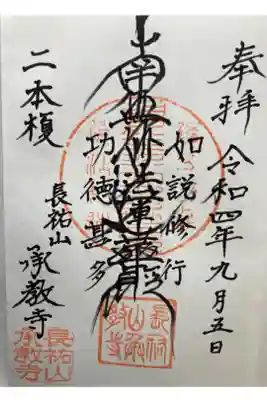 奉拝
令和四年九月五日
如説修行
南無妙法蓮華経
功徳甚多
二本榎
長祐山
承教寺
長祐山承教寺
長祐山承教寺